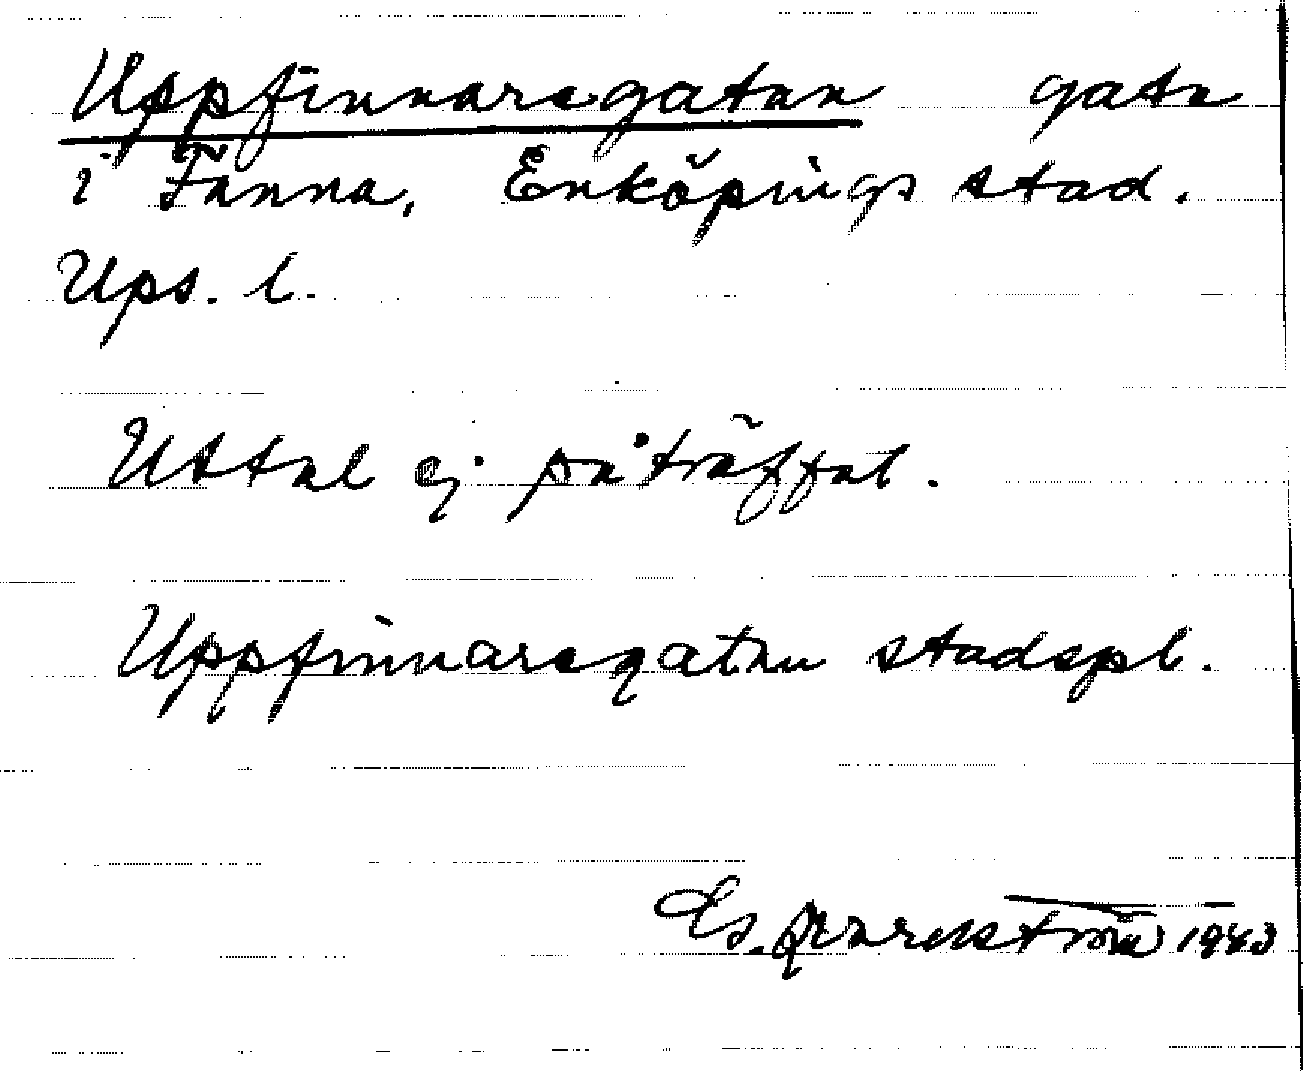 Uppfinnaregatan gata
i Fanna, Enköpings stad.
Ups. l.
Uttal ej påträffat.
Uppfinnaregatan stadspl.
1943